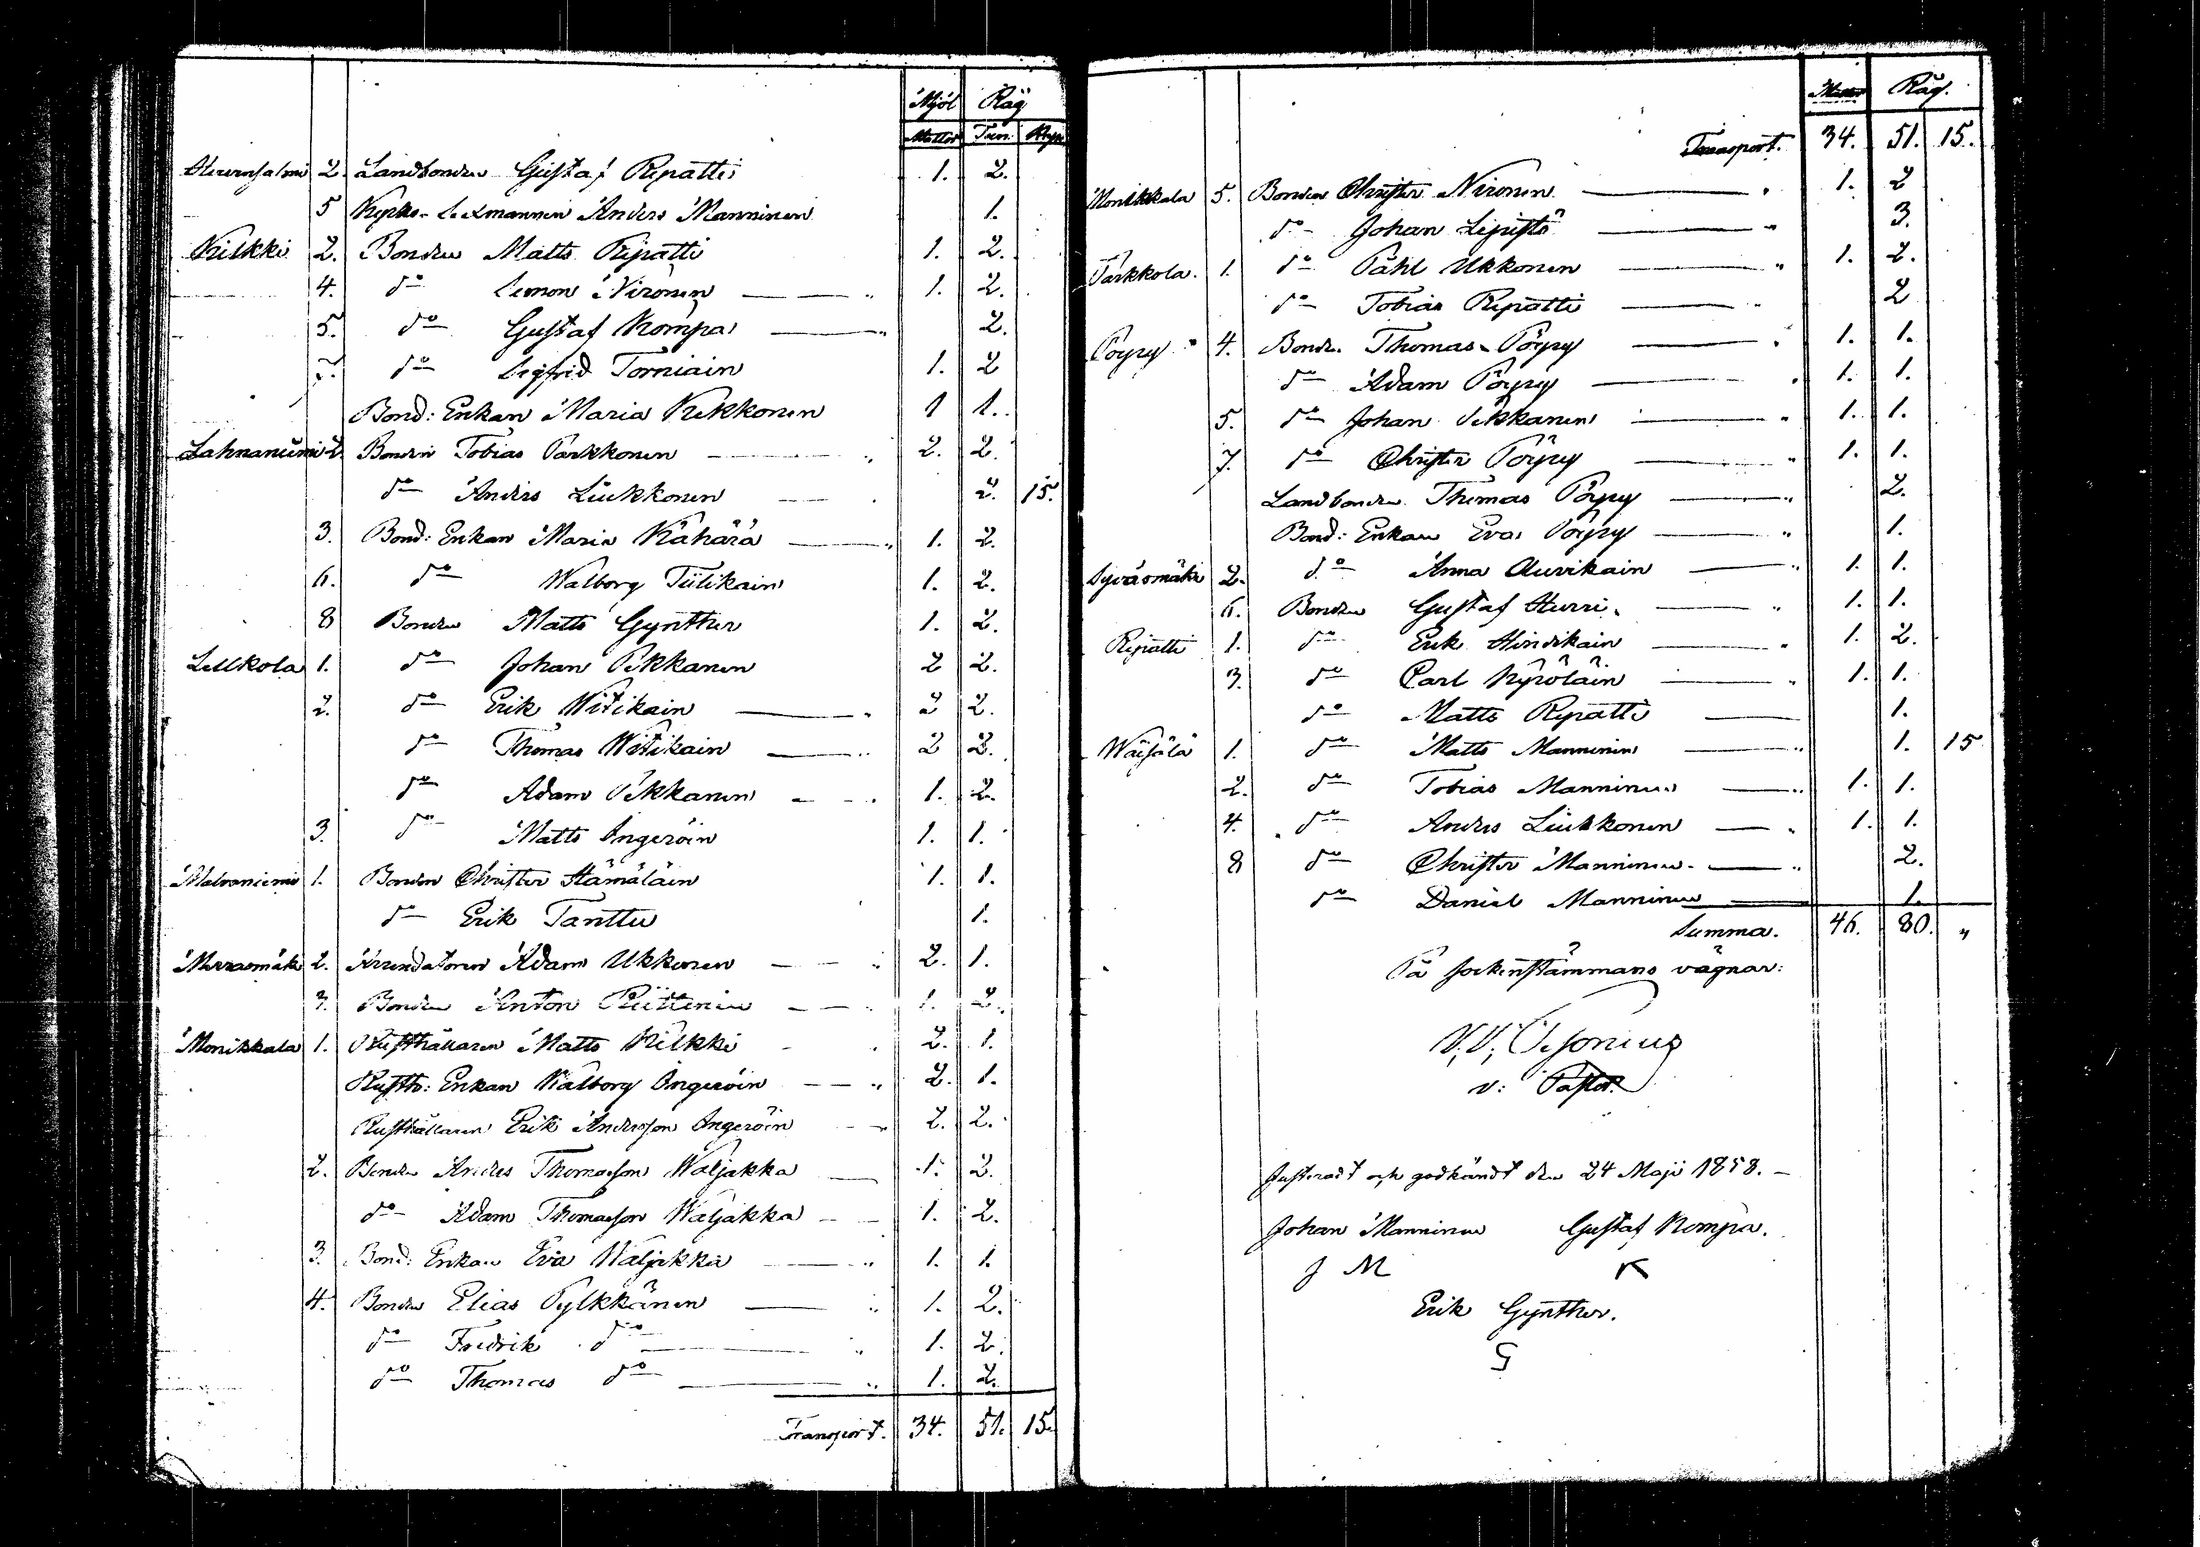 Mjöl Råg
Mattor Tun. Kap.
Hurunsalmi 2. Landbonden Gustaf Repatti 1. 2.
5 Kyrko-Sexmannen Anders Manninen 1.
Kilkki 2. Bonden Matts Repatti 1. 2.
4. do Simon Nironen 1. 2.
5. do Gustaf Kompa 2.
7. do Sigfrid Torniain 1. 2
Bond: Enkan Maria Kekkonen 1 1.
Lahnaniemi 2. Bonden Tobias Parkkonen 2. 2.
do Anders Liukkonen 2. 15.
3. Bond: Enkan Maria Kähärä 1. 2.
6. do Walborg Tiilikain 1. 2.
8 Bonden Matts Gynther 1. 2.
Lellkola 1. do Johan Pekkanen 2 2.
2. do Erik Witikain 2 2.
do Thomas Witikain 2 2.
do Adam Pekkanen 1. 2.
3. do Matts Ingeröin 1. 1.
Matvaniemi 1. Bonden Christer Hämäläin 1. 1.
do Erik Tanttu 1.
Murasmäki 2. Arrendatoren Adam Ukkonen 2. 1.
3. Bonden Anton Reittinen 1. 2.
Monikkala 1. Rusthållaren Matts Kilkki 2. 1.
Rusth: Enkan Walborg Ingeröin 2. 1.
Rusthållaren Erik Andersson Ingeröin 2. 2.
2. Bonden Anders Thomasson Waljakka 1. 2.
do Adam Thomasson Waljakka 1. 2.
3. Bond: Enkan Eva Waljakka 1. 1.
4. Bonden Elias Pylkkänen 1. 2.
do Fredrik do 1. 2.
do Thomas do 1. 2.
Transport. 34. 51. 15.
Mattor Råg.
Transport. 34. 51. 15.
Monikkala 5. Bonden Christer Nironen 1. 2
do Johan Lepistö 3.
Parkkola. 1. do Påhl Ukkonen 1. 2.
do Tobias Repatti 2
Pöyry 4. Bonden Thomas Pöyry 1. 1.
do Adam Pöyry 1. 1.
5. do Johan Pekkanen 1. 1.
7. do Christer Pöyry 1. 1.
Landbonden Thomas Pöyry 2.
Bond: Enkan Eva Pöyry 1.
Syväsmäki 2. do Anna Auvikain 1. 1.
6. Bonden Gustaf Hurri 1. 1.
Repatti 1. do Erik Hindikain 1. 2.
3. do Carl Kyröläin 1. 1.
do Matts Repatti 1.
Wäisälä 1. do Matts Manninen 1. 15
2. do Tobias Manninen 1. 1.
4. do Anders Liukkonen 1. 1.
8 do Christer Manninen 2.
do Daniel Manninen 1.
Summa. 46. 80. "
På sockenstämmans vägnar:
v: Pastor.
Justeradt och godkändt den 24 Maji 1858.
Johan Manninen Gustaf Kompa.
J M K
Erik Gynther.
G